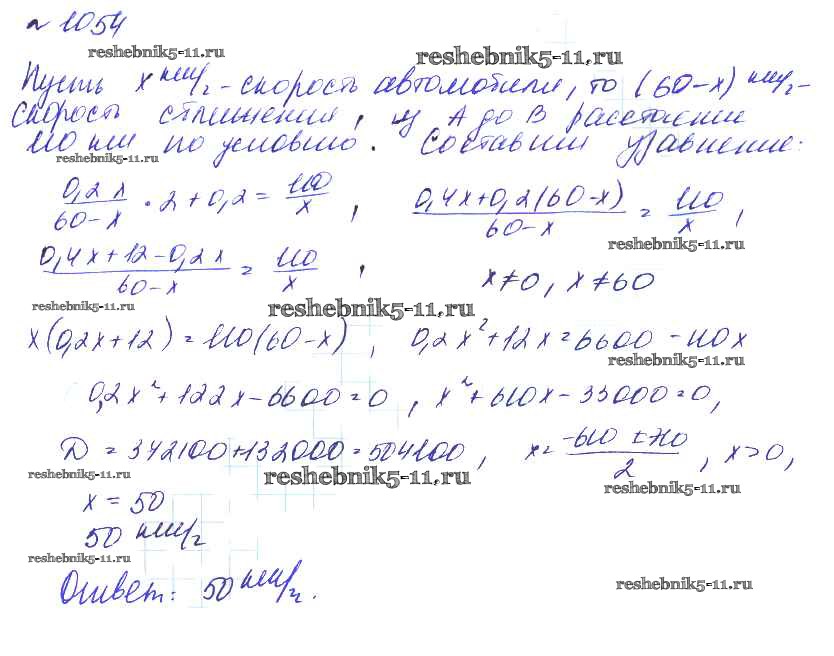 № 1054
reshebnik5-11.ru
reshebnik5-11.ru
Пусть x км/г - скорость автомобили, то (60-x) км/г -
скорость сближения, из A до B расстояние
110 км по условию. Составим уравнение:
reshebnik5-11.ru
0,2x/(60-x) · 2 + 0,2 = 110/x, (0,4x+0,2(60-x))/(60-x) = 110/x,
reshebnik5-11.ru
(0,4x+12-0,2x)/(60-x) = 110/x, x≠0, x≠60
reshebnik5-11.ru
reshebnik5-11.ru
x(0,2x+12) = 110(60-x), 0,2x²+12x=6600-110x
reshebnik5-11.ru
0,2x²+122x-6600=0, x²+610x-33000=0,
Д = 342100+132000=504100, x= (-610±710)/2, x>0,
reshebnik5-11.ru
reshebnik5-11.ru
reshebnik5-11.ru
x = 50
50 км/г
reshebnik5-11.ru
Ответ: 50 км/г.
reshebnik5-11.ru